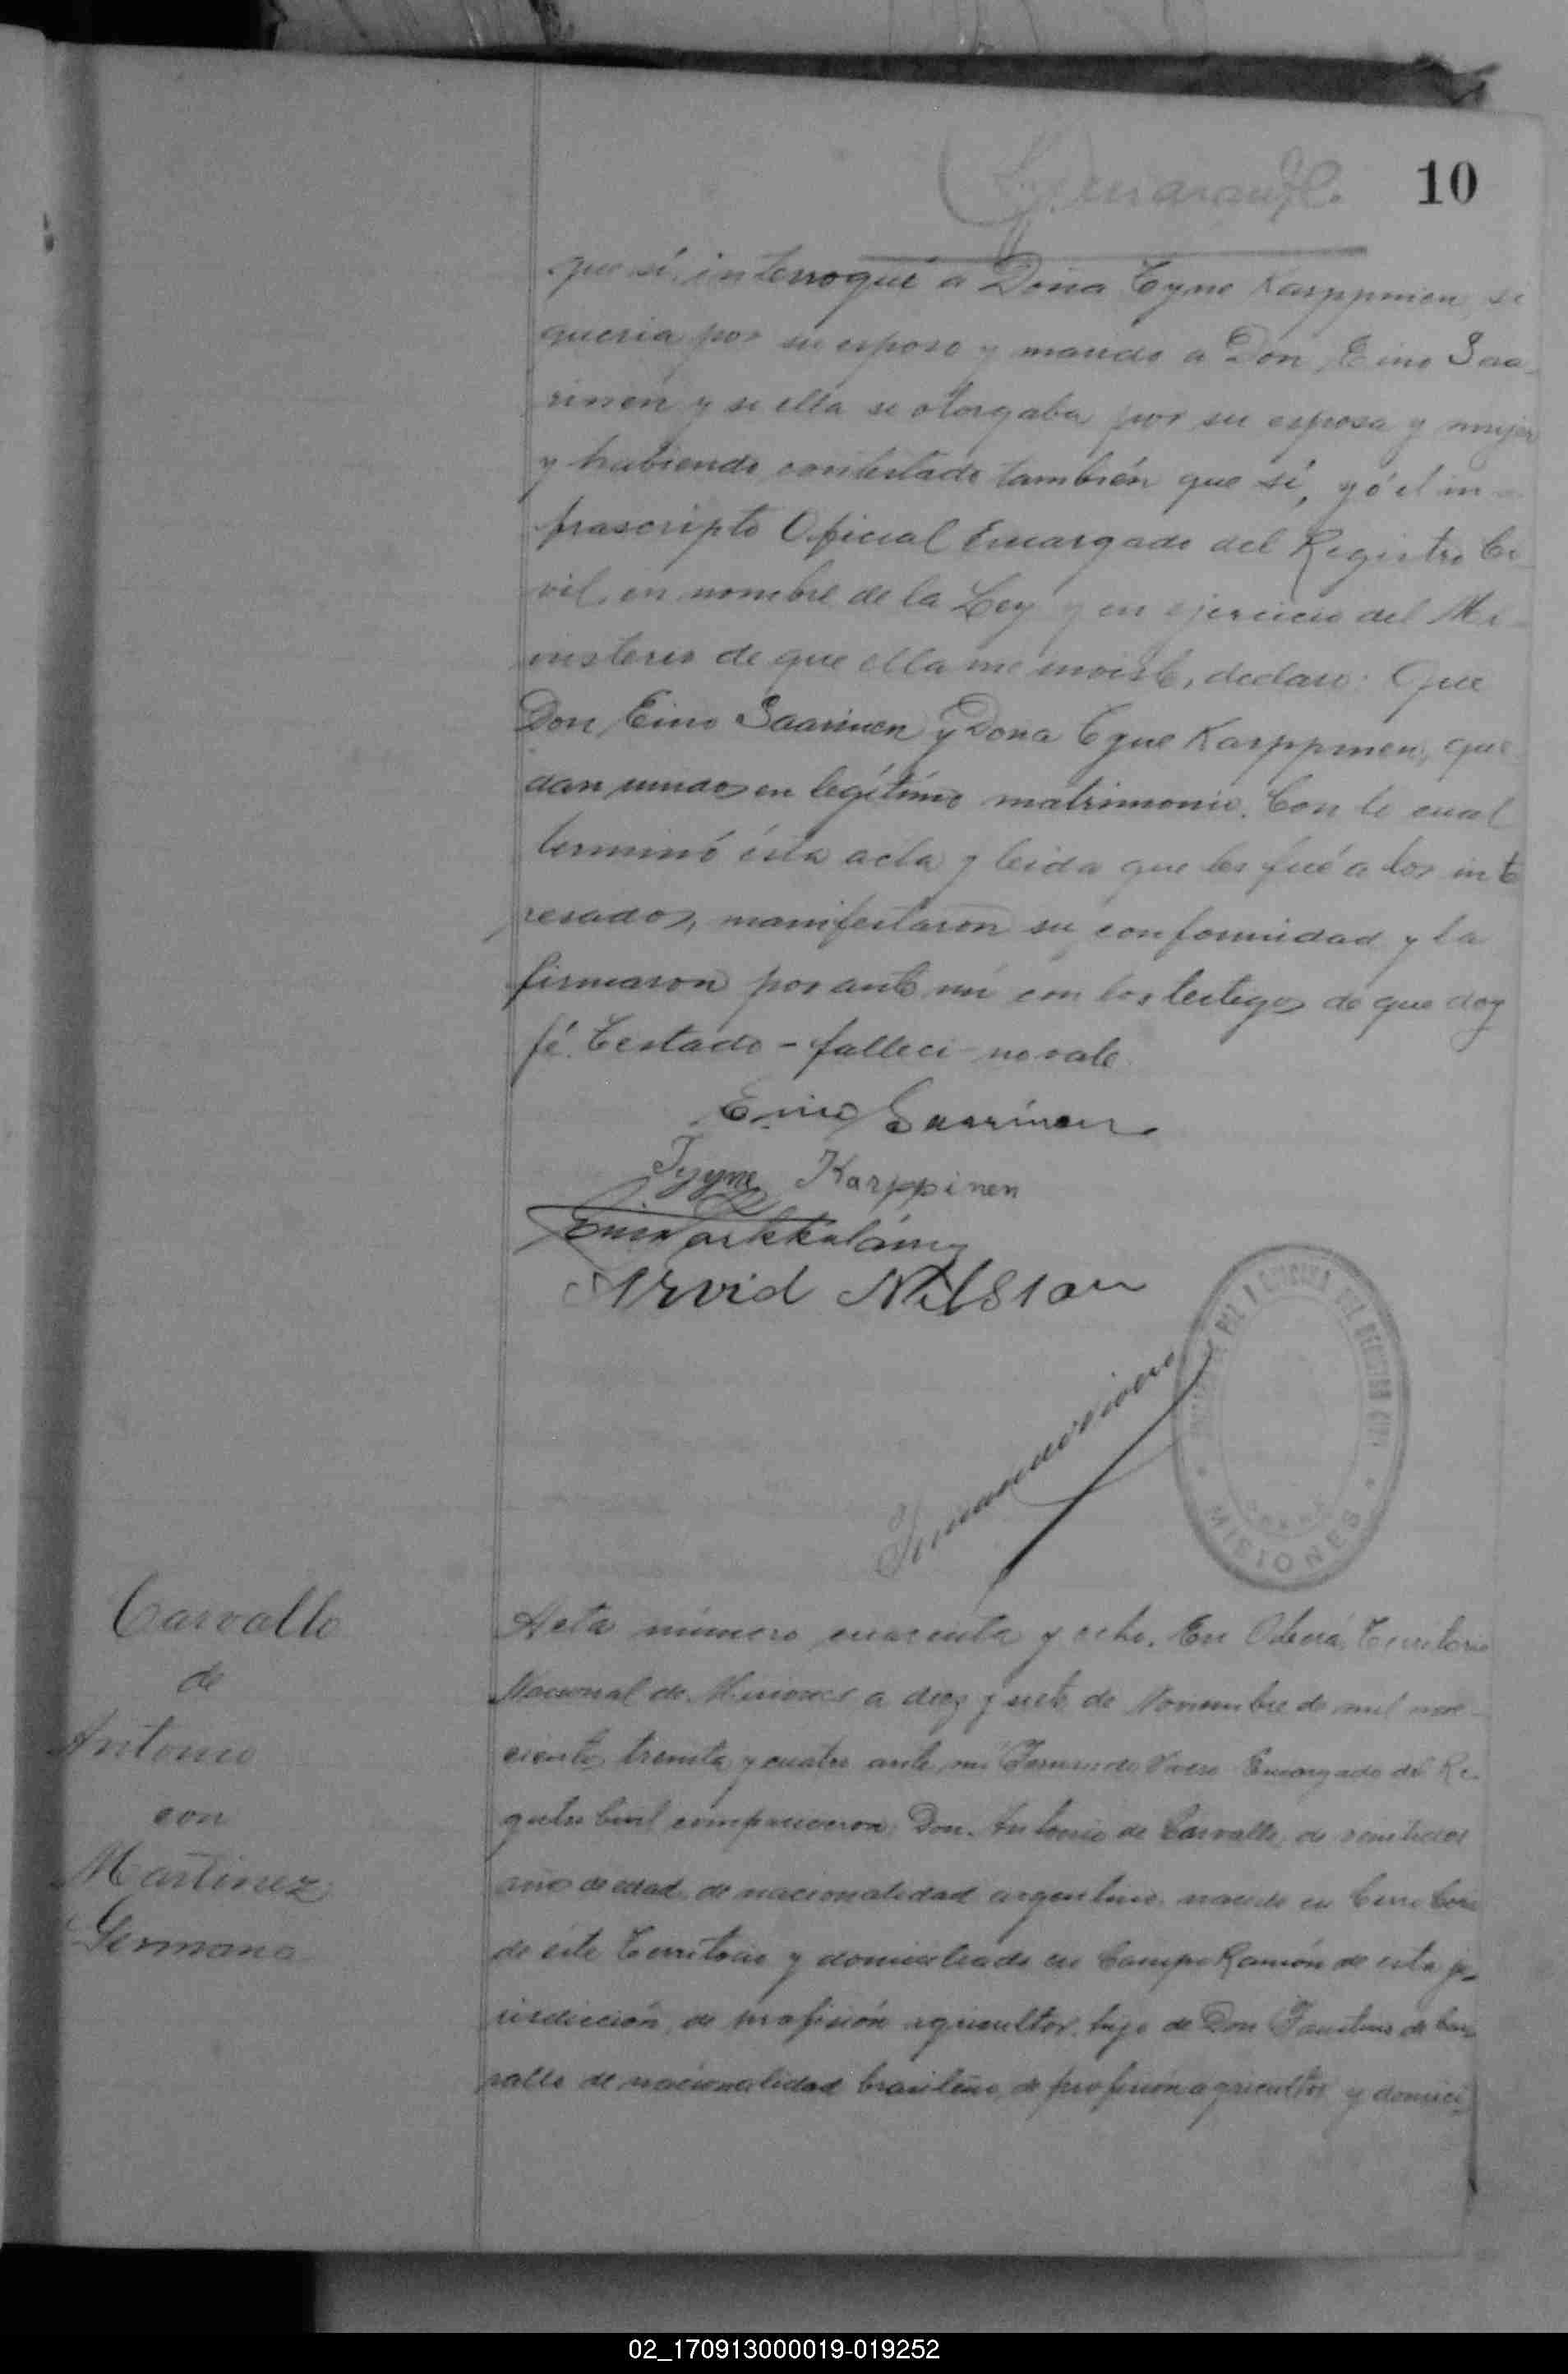 10
que sí, interrogué a Doña Tyne Karppinen, si
queria por su esposo y marido a Don Eino Saa-
rinen y si ella se otorgaba por su esposa y mujer
y habiendo contestado también que sí, yó el in-
frascripto Oficial Encargado del Registro Ci-
vil, en nombre de la Ley y en ejercicio del Mi-
nisterio de que ella me inviste, declaro: Que
Don Eino Saarinen y Doña Tyne Karppinen, que-
dan unidos en legítimo matrimonio. Con lo cual
terminó ésta acta y leida que les fué a los inte
resados, manifestaron su conformidad y la
firmaron por ante mí con los testigos de que doy
fé. Testado - falleci - no vale
Eino Saarinen
Tyyne Karppinen
Arvid Nilsson
DEL REGISTRO CIVIL
MISIONES
Carvallo
de
Antonio
con
Martinez
Germana
Acta número cuarenta y ocho. En Oberá, Territorio
Nacional de Misiones a diez y siete de Noviembre de mil nove-
cientos treinta y cuatro ante mí Fernando Vivero Encargado del Re-
gistro Civil comparecieron: Don Antonio de Carvallo, de veintidos
años de edad, de nacionalidad argentino, nacido en Cerro Corá
de éste Territorio y domiciliado en Campo Ramón de esta ju-
risdicción, de profesión agricultor, hijo de Don Faustino de Car-
vallo de nacionalidad brasileño, de profesión agricultor y domici-
02_170913000019-019252